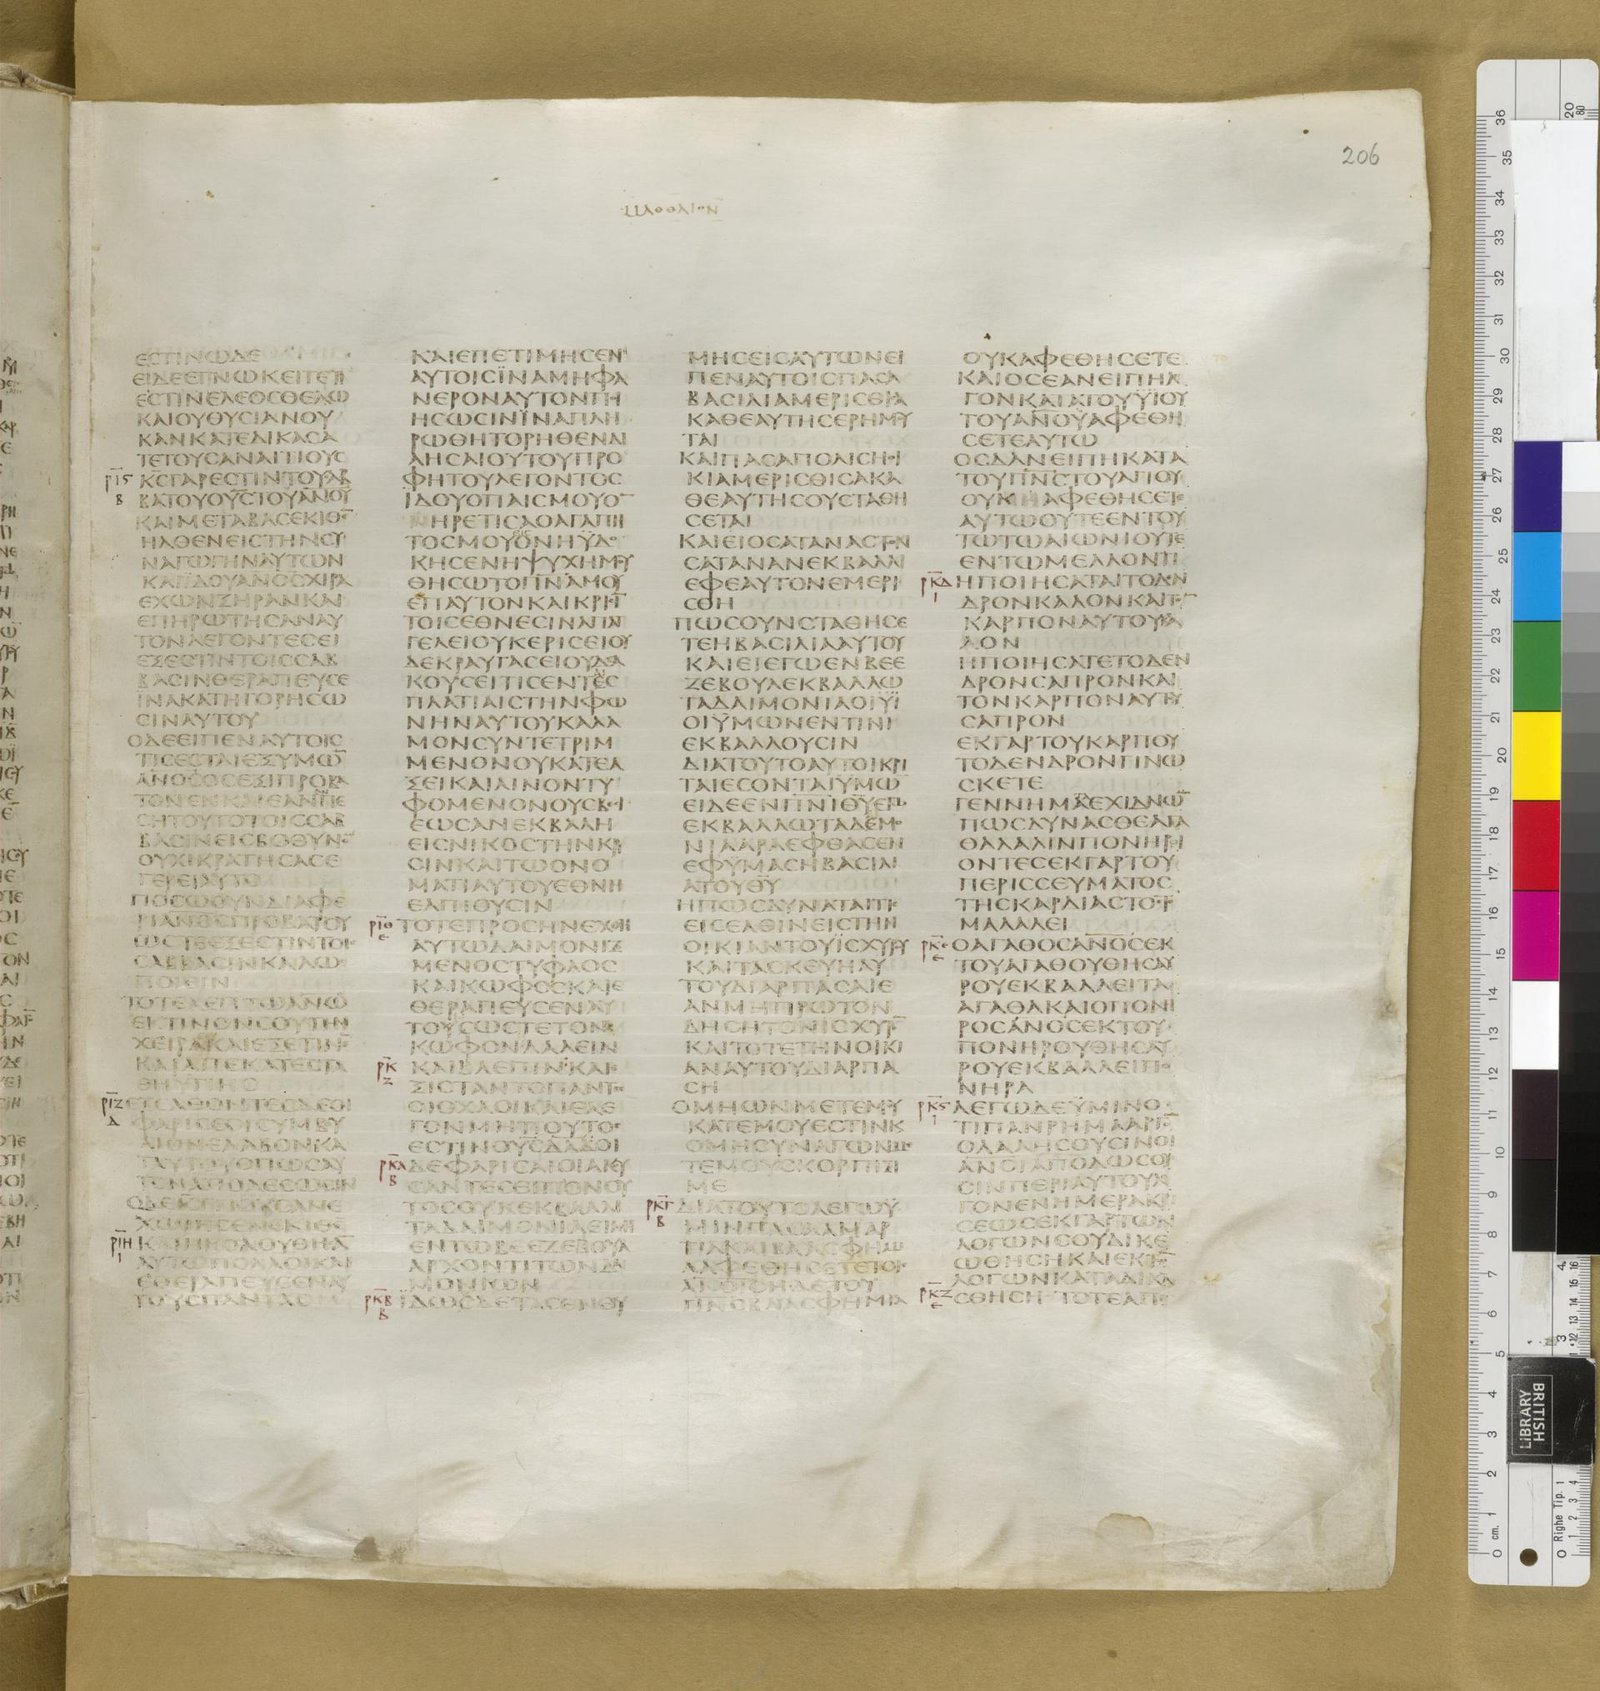 206
ΕϹΤΙΝΩΔΕ
ΕΙΔΕΕΓΝΩΚΕΙΤΕΤΙ
ΕϹΤΙΝΕΛΕΟϹΘΕΛΩ
ΚΑΙΟΥΘΥϹΙΑΝΟΥ
ΚΑΝΚΑΤΕΔΙΚΑϹΑ
ΤΕΤΟΥϹΑΝΑΙΤΙΟΥϹ
ΡΙϚ Β
ΚϹΓΑΡΕϹΤΙΝΤΟΥϹΑΒ
ΒΑΤΟΥΟΥϹΤΟΥΑΝΟΥ
ΚΑΙΜΕΤΑΒΑϹΕΚΙΘΕ̅
ΗΛΘΕΝΕΙϹΤΗΝϹΥ
ΝΑΓΩΓΗΝΑΥΤΩΝ
ΚΑΙΪΔΟΥΑΝΟϹΧΙΡΑ
ΕΧΩΝΞΗΡΑΝΚΑΙ
ΕΠΗΡΩΤΗϹΑΝΑΥ
ΤΟΝΛΕΓΟΝΤΕϹΕΙ
ΕΞΕϹΤΙΝΤΟΙϹϹΑΒ
ΒΑϹΙΝΘΕΡΑΠΕΥϹΕ
ΙΝΑΚΑΤΗΓΟΡΗϹΩ
ϹΙΝΑΥΤΟΥ
ΟΔΕΕΙΠΕΝΑΥΤΟΙϹ
ΤΙϹΕϹΤΑΙΕΞΥΜΩ̅
ΑΝΟϹΟϹΕΞΙΠΡΟΒΑ
ΤΟΝΕΝΚΑΙΕΑΝΠΕ
ϹΗΤΟΥΤΟΤΟΙϹϹΑΒ
ΒΑϹΙΝΕΙϹΒΟΘΥΝΟ̅
ΟΥΧΙΚΡΑΤΗϹΑϹΕ
ΓΕΡΕΙΑΥΤΟ
ΠΟϹΩΟΥΝΔΙΑΦΕ
ΡΙΑΝΟϹΠΡΟΒΑΤΟΥ
ΩϹΤΕΕΞΕϹΤΙΝΤΟΙϹ
ϹΑΒΒΑϹΙΝΚΑΛΩϹ
ΠΟΙΕΙΝ
ΤΟΤΕΛΕΓΙΤΩΑΝΩ
ΕΚΤΙΝΟΝϹΟΥΤΗΝ
ΧΕΙΡΑΚΑΙΕΞΕΤΙΝΕ̅
ΚΑΙΑΠΕΚΑΤΕϹΤΑ
ΘΗΥΓΙΗϹ
ΡΙΖ Δ
ΕΞΕΛΘΟΝΤΕϹΔΕΟΙ
ΦΑΡΙϹΕΟΙϹΥΜΒΥ
ΛΙΟΝΕΛΑΒΟΝΚΑ
ΤΑΥΤΟΥΟΠΩϹΑΥ
ΤΟΝΑΠΟΛΕϹΩϹΙΝ
ΟΔΕΙϹΓΝΟΥϹΑΝΕ
ΧΩΡΗϹΕΝΕΚΙΘΕ̅
ΡΙΗ Ι
ΚΑΙΗΚΟΛΟΥΘΗϹΑ̅
ΑΥΤΩΠΟΛΛΟΙΚΑΙ
ΕΘΕΡΑΠΕΥϹΕΝΑΥ
ΤΟΥϹΠΑΝΤΑϹ
ΚΑΙΕΠΕΤΙΜΗϹΕΝ
ΑΥΤΟΙϹΪΝΑΜΗΦΑ
ΝΕΡΟΝΑΥΤΟΝΠΗ
ΗϹΩϹΙΝΪΝΑΠΛΗ
ΡΩΘΗΤΟΡΗΘΕΝΔΙ
ΑΗϹΑΙΟΥΤΟΥΠΡΟ
ΦΗΤΟΥΛΕΓΟΝΤΟϹ
ΪΔΟΥΟΠΑΙϹΜΟΥΟ̅
ΗΡΕΤΙϹΑΟΑΓΑΠΗ
ΤΟϹΜΟΥΟΝΗΥΔΟ
ΚΗϹΕΝΗΨΥΧΗΜΟΥ
ΘΗϹΩΤΟΠΝΑΜΟΥ
ΕΠΑΥΤΟΝΚΑΙΚΡΙϹΙ̅
ΤΟΙϹΕΘΝΕϹΙΝΑΠΑΓ
ΓΕΛΕΙΟΥΚΕΡΙϹΕΙΟΥ
ΔΕΚΡΑΥΓΑϹΕΙΟΥΔΕΑ
ΚΟΥϹΕΙΤΙϹΕΝΤΕϹ
ΠΛΑΤΙΑΙϹΤΗΝΦΩ
ΝΗΝΑΥΤΟΥΚΑΛΑ
ΜΟΝϹΥΝΤΕΤΡΙΜ
ΜΕΝΟΝΟΥΚΑΤΕΑ
ΞΕΙΚΑΙΛΙΝΟΝΤΥ
ΦΟΜΕΝΟΝΟΥϹΒΕϹΙ
ΕΩϹΑΝΕΚΒΑΛΗ
ΕΙϹΝΙΚΟϹΤΗΝΚΡΙ
ϹΙΝΚΑΙΤΩΟΝΟ
ΜΑΤΙΑΥΤΟΥΕΘΝΗ
ΕΛΠΙΟΥϹΙΝ
ΡΙΘ Ε
ΤΟΤΕΠΡΟϹΗΝΕΧΘΗ
ΑΥΤΩΔΑΙΜΟΝΙΖ
ΜΕΝΟϹΤΥΦΛΟϹ
ΚΑΙΚΩΦΟϹΚΑΙΕ
ΘΕΡΑΠΕΥϹΕΝΑΥ
ΤΟΥϹΩϹΤΕΤΟΝ
ΚΩΦΟΝΛΑΛΕΙΝ
ΡΚ Ζ
ΚΑΙΒΛΕΠΙΝΚΑΙΕ
ΞΙϹΤΑΝΤΟΠΑΝΤΕϹ
ΟΙΟΧΛΟΙΚΑΙΕΛΕ
ΓΟΝΜΗΤΙΟΥΤΟϹ
ΕϹΤΙΝΟΥϹΔΑΔΟΙ
ΡΚΑ Β
ΔΕΦΑΡΙϹΑΙΟΙΑΚΟΥ
ϹΑΝΤΕϹΕΙΠΟΝΟΥ
ΤΟϹΟΥΚΕΚΒΑΛΛΙ
ΤΑΔΑΙΜΟΝΙΑΕΙΜΗ
ΕΝΤΩΒΕΕΖΕΒΟΥΛ
ΑΡΧΟΝΤΙΤΩΝΔΑΙ
ΜΟΝΙΩΝ
ΡΚΒ Β
ΪΔΩϹΔΕΤΑϹΕΝΘΥ
ΜΗϹΕΙϹΑΥΤΩΝΕΙ
ΠΕΝΑΥΤΟΙϹΠΑϹΑ
ΒΑϹΙΛΙΑΜΕΡΙϹΘΙϹΑ
ΚΑΘΕΑΥΤΗϹΕΡΗΜΟΥ
ΤΑΙ
ΚΑΙΠΑϹΑΠΟΛΙϹΗΟΙ
ΚΙΑΜΕΡΙϹΘΙϹΑΚΑ
ΘΕΑΥΤΗϹΟΥϹΤΑΘΗ
ϹΕΤΑΙ
ΚΑΙΕΙΟϹΑΤΑΝΑϹΤΟΝ
ϹΑΤΑΝΑΝΕΚΒΑΛΛΙ
ΕΦΕΑΥΤΟΝΕΜΕΡΙ
ϹΘΗ
ΠΩϹΟΥΝϹΤΑΘΗϹΕ
ΤΕΗΒΑϹΙΛΙΑΑΥΤΟΥ
ΚΑΙΕΙΕΓΩΕΝΒΕΕ
ΖΕΒΟΥΛΕΚΒΑΛΛΩ
ΤΑΔΑΙΜΟΝΙΑΟΙΫΙ
ΟΙΫΜΩΝΕΝΤΙΝΙ
ΕΚΒΑΛΛΟΥϹΙΝ
ΔΙΑΤΟΥΤΟΑΥΤΟΙΚΡΙ
ΤΑΙΕϹΟΝΤΑΙΫΜΩ̅
ΕΙΔΕΕΝΠΝΙΘΥΕΓΩ
ΕΚΒΑΛΛΩΤΑΔΕΜΟ
ΝΙΑΑΡΑΕΦΘΑϹΕΝ
ΕΦΥΜΑϹΗΒΑϹΙΛΙ
ΑΤΟΥΘΥ
ΗΠΩϹΔΥΝΑΤΑΙΤΙϹ
ΕΙϹΕΛΘΙΝΕΙϹΤΗΝ
ΟΙΚΙΑΝΤΟΥΪϹΧΥΡΟΥ
ΚΑΙΤΑϹΚΕΥΗΑΥ
ΤΟΥΔΙΑΡΠΑϹΑΙΕ
ΑΝΜΗΠΡΩΤΟΝ
ΔΗϹΗΤΟΝΙϹΧΥΡΟ̅
ΚΑΙΤΟΤΕΤΗΝΟΙΚΙ
ΑΝΑΥΤΟΥΔΙΑΡΠΑ
ϹΗ
ΟΜΗΩΝΜΕΤΕΜΟΥ
ΚΑΤΕΜΟΥΕϹΤΙΝΚ
ΟΜΗϹΥΝΑΓΩΝΜΕ
ΤΕΜΟΥϹΚΟΡΠΙΖΙ
ΜΕ
ΡΚΓ Β
ΔΙΑΤΟΥΤΟΛΕΓΩΫ
ΜΙΝΠΑϹΑΑΜΑΡ
ΤΙΑΚΑΙΒΛΑϹΦΗΜΙ
ΑΑΦΕΘΗϹΕΤΕΤΟΙϹ
ΑΝΟΙϹΗΔΕΤΟΥ
ΠΝϹΒΛΑϹΦΗΜΙΑ
ΟΥΚΑΦΕΘΗϹΕΤΕ
ΚΑΙΟϹΕΑΝΕΙΠΗΛΟ
ΓΟΝΚΑΤΑΤΟΥΫΙΟΥ
ΤΟΥΑΝΟΥΑΦΕΘΗ
ϹΕΤΕΑΥΤΩ
ΟϹΔΑΝΕΙΠΗΚΑΤΑ
ΤΟΥΠΝϹΤΟΥΑΓΙΟΥ
ΟΥΚΑΦΕΘΗϹΕΤΕ
ΑΥΤΩΟΥΤΕΕΝΤΟΥ
ΤΩΤΩΑΙΩΝΙΟΥΤΕ
ΕΝΤΩΜΕΛΛΟΝΤΙ
ΡΚΔ Ι
ΗΠΟΙΗϹΑΤΑΙΤΟΔΕΝ
ΔΡΟΝΚΑΛΟΝΚΑΙΤΟ̅
ΚΑΡΠΟΝΑΥΤΟΥΚΑ
ΛΟΝ
ΗΠΟΙΗϹΑΤΕΤΟΔΕΝ
ΔΡΟΝϹΑΠΡΟΝΚΑΙ
ΤΟΝΚΑΡΠΟΝΑΥΤΟΥ
ϹΑΠΡΟΝ
ΕΚΓΑΡΤΟΥΚΑΡΠΟΥ
ΤΟΔΕΝΔΡΟΝΓΙΝΩ
ϹΚΕΤΕ
ΓΕΝΝΗΜΑΤΑΕΧΙΔΝΩ̅
ΠΩϹΔΥΝΑϹΘΕΑΓΑ
ΘΑΛΑΛΙΝΠΟΝΗΡΟΙ
ΟΝΤΕϹΕΚΓΑΡΤΟΥ
ΠΕΡΙϹϹΕΥΜΑΤΟϹ
ΤΗϹΚΑΡΔΙΑϹΤΟϹΤΟ
ΜΑΛΑΛΕΙ
ΡΚΕ Ε
ΟΑΓΑΘΟϹΑΝΟϹΕΚ
ΤΟΥΑΓΑΘΟΥΘΗϹΑΥ
ΡΟΥΕΚΒΑΛΛΕΙΤΑ
ΑΓΑΘΑΚΑΙΟΠΟΝΗ
ΡΟϹΑΝΟϹΕΚΤΟΥ
ΠΟΝΗΡΟΥΘΗϹΑΥ
ΡΟΥΕΚΒΑΛΛΕΙΠΟ
ΝΗΡΑ
ΡΚϚ Ι
ΛΕΓΩΔΕΫΜΙΝΟ
ΤΙΠΑΝΡΗΜΑΑΡΓΟ̅
ΟΛΑΛΗϹΟΥϹΙΝΟΙ
ΑΝΟΙΑΠΟΔΩϹΟΥ
ϹΙΝΠΕΡΙΑΥΤΟΥΛΟ
ΓΟΝΕΝΗΜΕΡΑΚΡΙ
ϹΕΩϹΕΚΓΑΡΤΩΝ
ΛΟΓΩΝϹΟΥΔΙΚΕ
ΩΘΗϹΗΚΑΙΕΚΤΩ̅
ΛΟΓΩΝΚΑΤΑΔΙΚΑ
ΡΚΖ Ε
ϹΘΗϹΗΤΟΤΕΑΠΕ